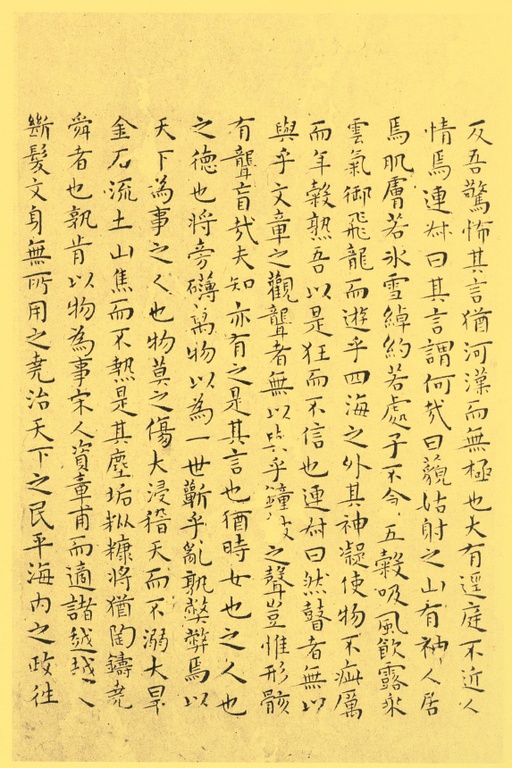 反吾驚怖其言猶河漢而無極也大有逕庭不近人
情焉連叔曰其言謂何哉曰藐姑射之山有神人居
焉肌膚若冰雪綽約若處子不食五穀吸風飲露乘
雲氣御飛龍而遊乎四海之外其神凝使物不疵厲
而年穀熟吾以是狂而不信也連叔曰然瞽者無以
與乎文章之觀聾者無以與乎鐘鼓之聲豈惟形骸
有聾盲哉夫知亦有之是其言也猶時女也之人也
之德也將旁礴萬物以為一世蘄乎亂孰弊弊焉以
天下為事之人也物莫之傷大浸稽天而不溺大旱
金石流土山焦而不熱是其塵垢粃糠將猶陶鑄堯
舜者也孰肯以物為事宋人資章甫而適諸越越人
斷髮文身無所用之堯治天下之民平海內之政往